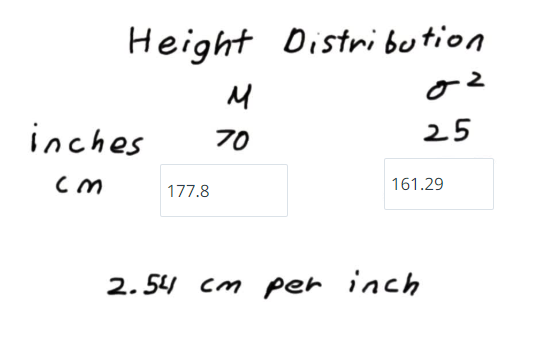 Height Distribution
M σ²
inches 70 25
cm 177.8 161.29
2.54 cm per inch